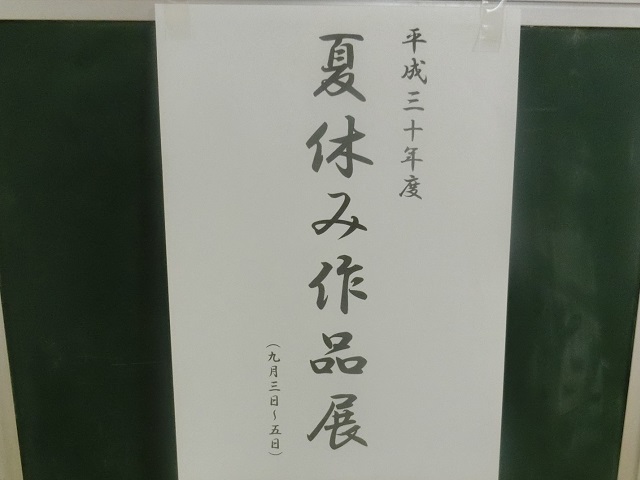 平成三十年度
夏休み作品展
（九月三日～五日）